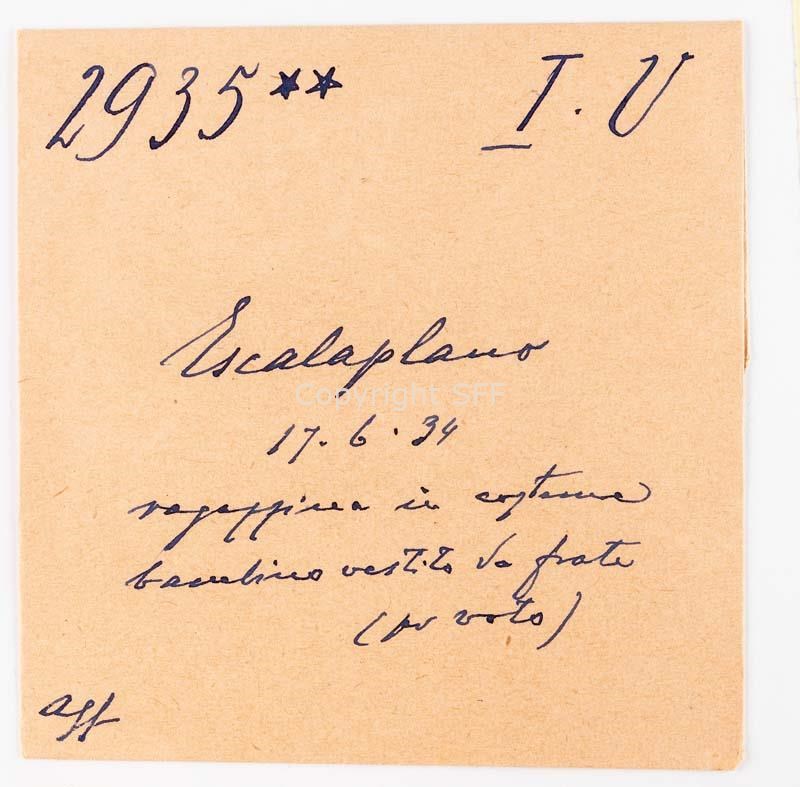 2935** I. V
Escalaplano
Copyright SFF
17. 6. 34
ragazzina in costume
bambino vestito da frate
(per voto)
agf